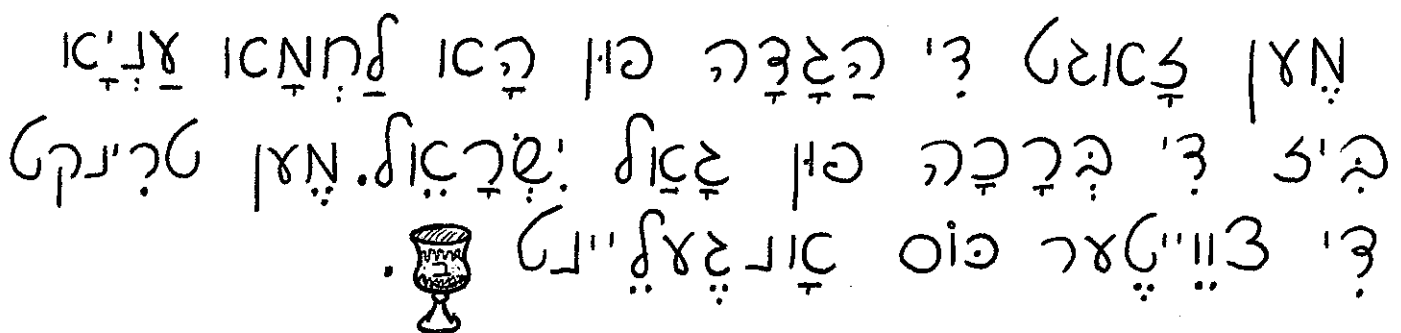 מֶען זָאגט דִי הַגָדָה פון הָא לַחְמָא עַנְיָא
בִּיז דִי בְּרָכָה פון גָאַל יִשְׂרָאֵל. מֶען טרִינקט
דִי צווֵייטֶער כּוֹס אָנגֶעלֵיינט ב.